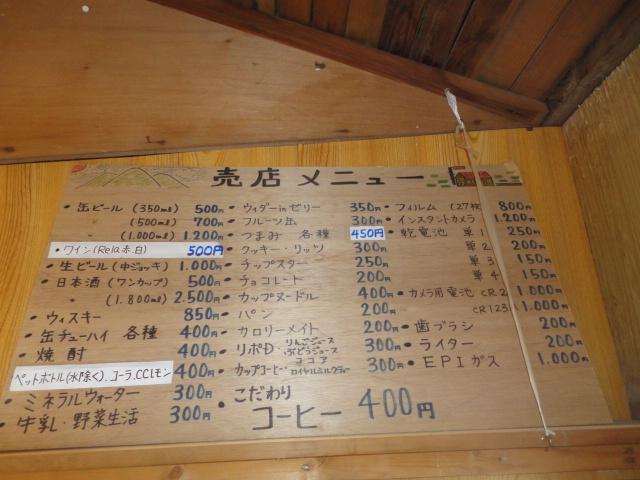 売店 メニュー
缶ビール (350ml) 500円
〃 (500ml) 700円
〃 (1,000ml) 1,200円
ワイン(Rela赤.白) 500円
生ビール(中ジョッキ) 1,000円
日本酒(ワンカップ) 500円
〃 (1.800ml) 2,500円
ウィスキー 850円
缶チューハイ 各種 400円
焼酎 400円
ペットボトル(水除く).コーラ.CCレモン 400円
ミネラルウォーター 300円
牛乳・野菜生活 300円
ウィダーinゼリー 350円
フルーツ缶 300円
つまみ 各種 450円
クッキー・リッツ 300円
チップスター 250円
チョコレート 200円
カップヌードル 400円
パン 200円
カロリーメイト 200円
リポD・りんごジュース・ぶどうジュース ココア 300円
カップコーヒー・ロイヤルミルクティー 300円
こだわり
コーヒー 400円
フィルム (27枚 800円
インスタントカメラ 1,200円
乾電池 単1 250円
単2 200円
単3 150円
単4 150円
カメラ用電池 CR2 1,000円
CR123 1,000円
歯ブラシ 200円
ライター 200円
EPIガス 1,000円